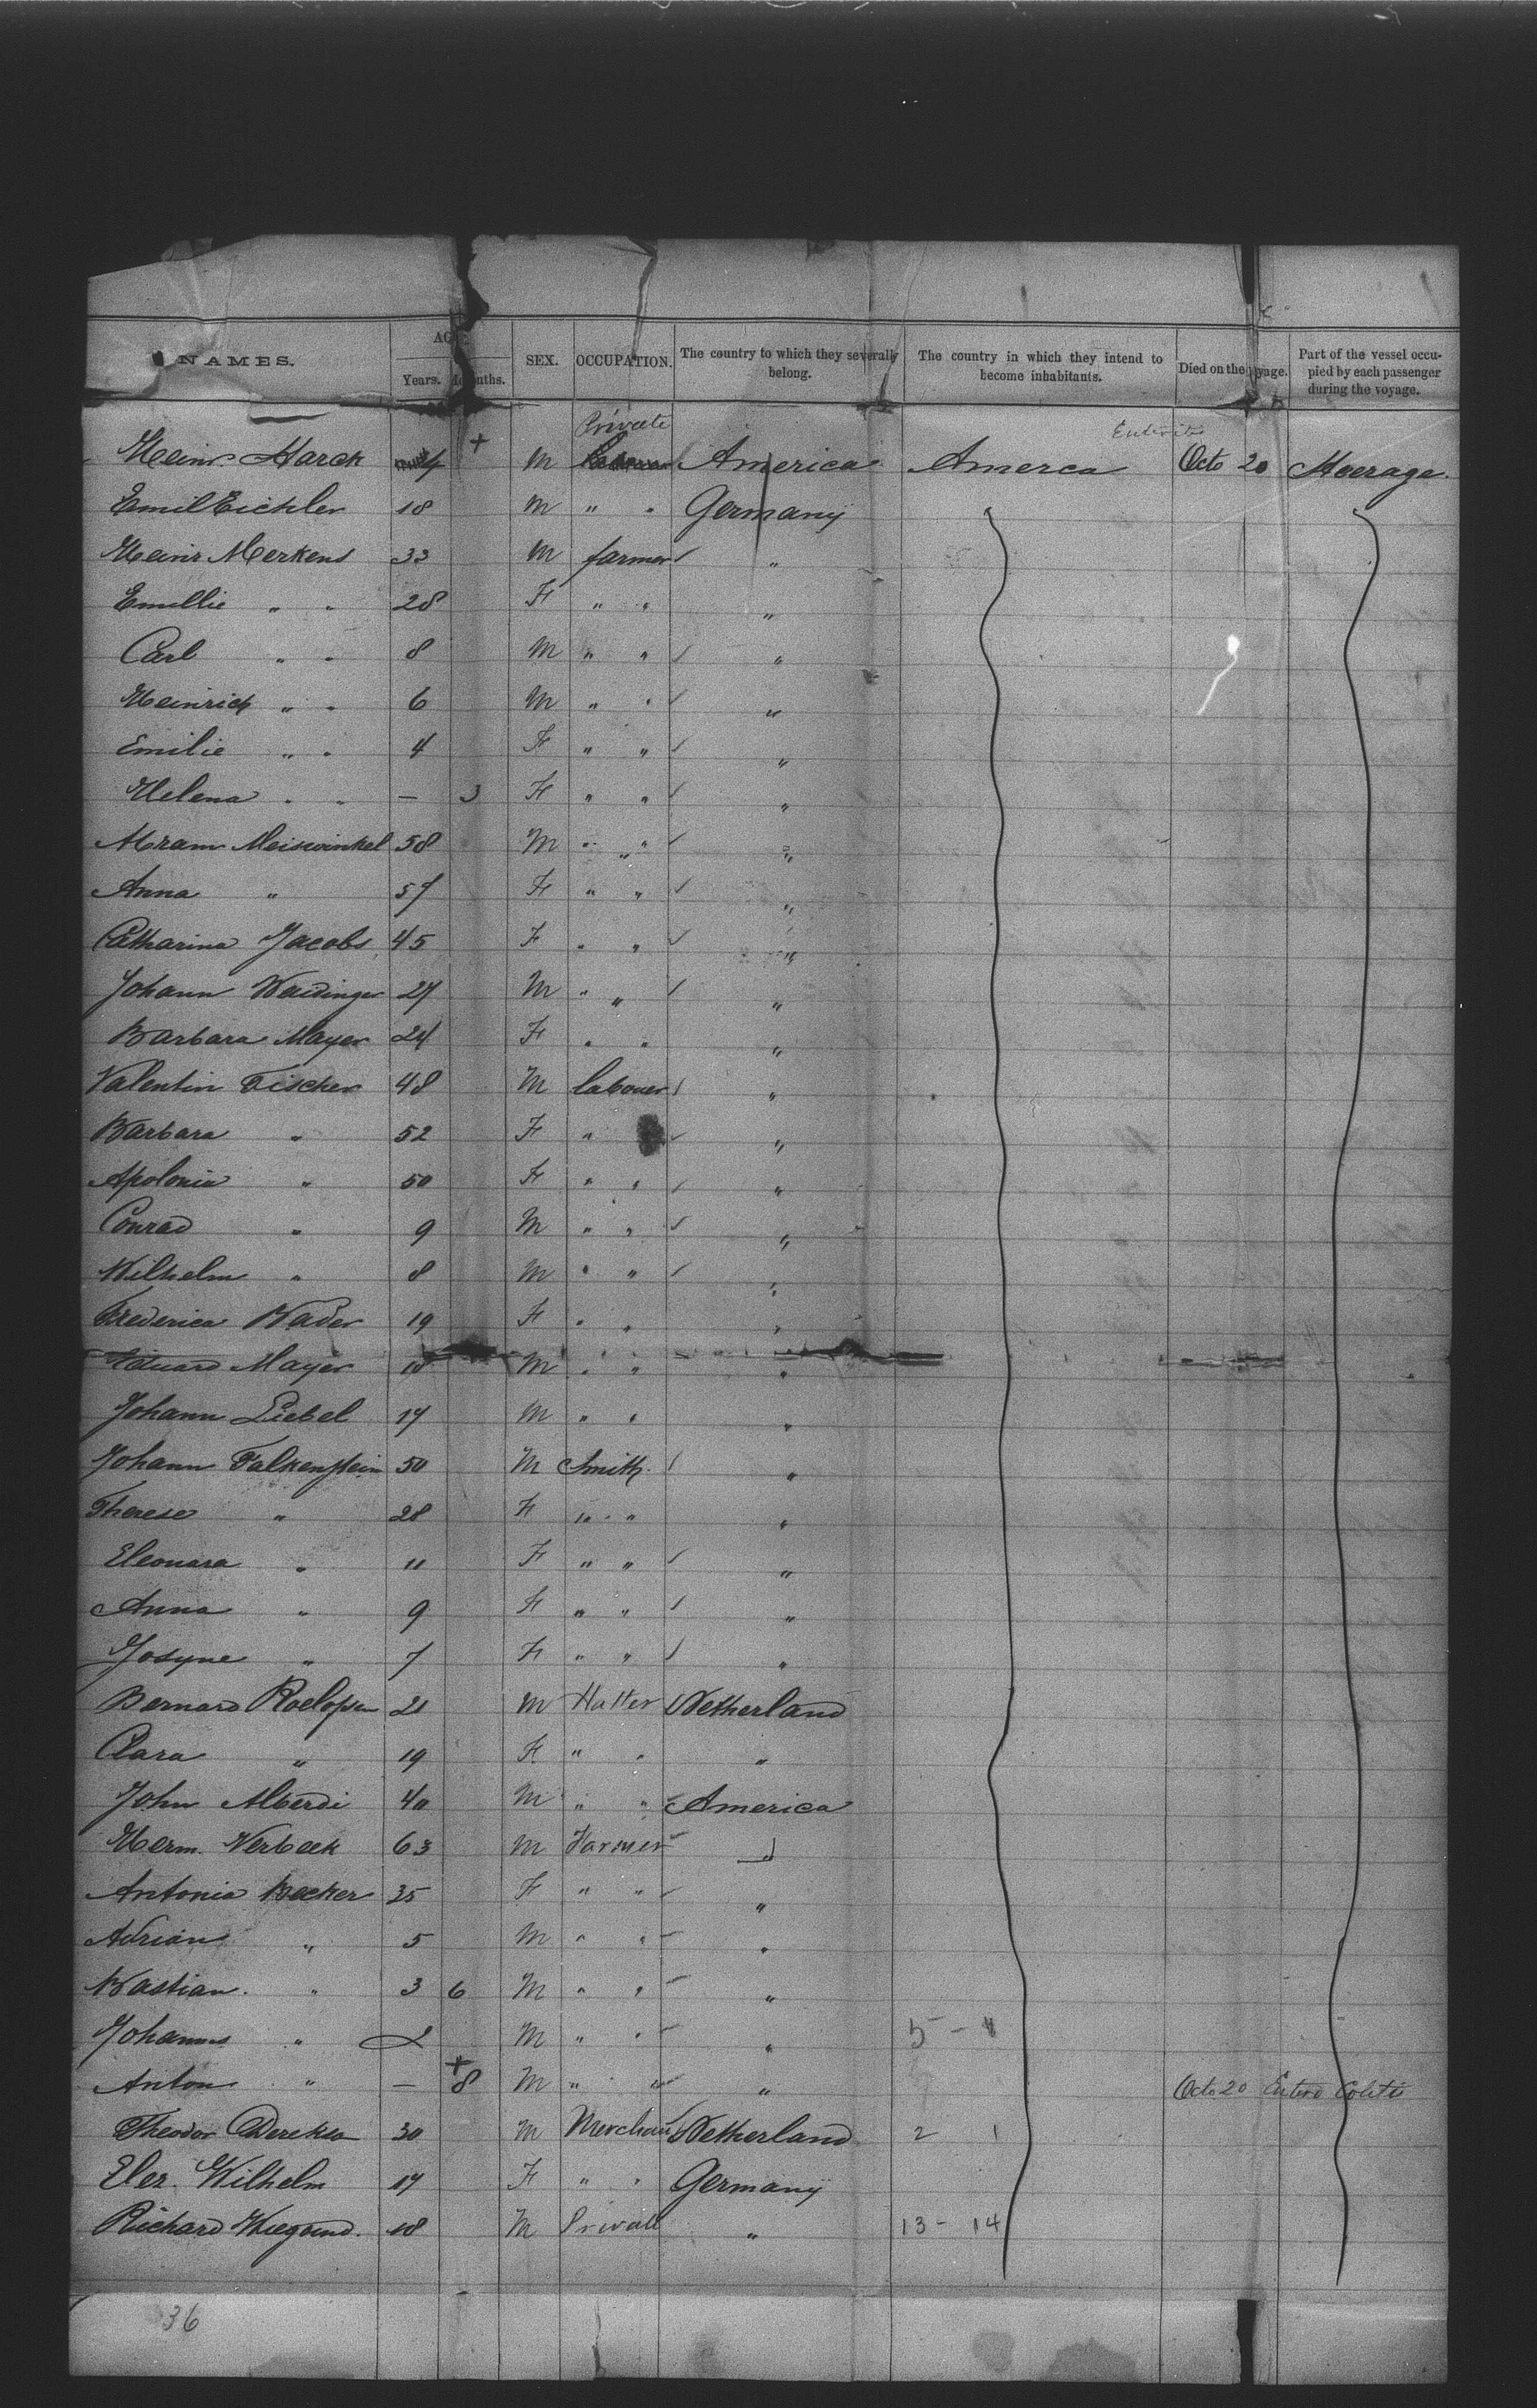 NAMES. AGE. Years. Months. SEX. OCCUPATION. The country to which they severally belong. The country in which they intend to become inhabitants. Died on the voyage. Part of the vessel occupied by each passenger during the voyage.
Private Enteritis
Heinr. Harck 4 + M America Amerca Octo 20 Steerage.
Emil Eichler 18 M " " Germany
Heinr Merkens 33 M farmer "
Emillie " " 28 F " " "
Carl " " 8 M " " "
Heinrich " " 6 M " " "
Emilie " " 4 F " " "
Helena " " — 3 F " " "
Abram Meiswinkel 58 M " " "
Anna " 57 F " " "
Catharina Jacobs 45 F " " "
Johann Weidinger 27 M " " "
Barbara Mayer 24 F " " "
Valentin Fischer 48 M labouer "
Barbara " 52 F " "
Apolonia " 50 F " " "
Conrad " 9 M " " "
Wilhelm " 8 M " " "
Frederica Wader 19 F " " "
Eduard Mayer 18 M " " "
Johann Liebel 17 M " " "
Johann Falkenstein 50 M Smith "
Therese " 28 F " " "
Eleonara " 11 F " " "
Anna " 9 F " " "
Josyne " 7 F " " "
Bernard Roelofsen 21 M Hatter Netherland
Clara " 19 F " " "
John Alberdi 40 M " " America
Herm. Verbeek 63 M Farmer "
Antonia Becker 35 F " " "
Adrian " 5 M " " "
Bastian. " 3 6 M " " "
Johannes " 2 M " " " 5 -
Anton " — + 8 M " " " Octo 20 Entero Coletis
Theodor Dereksa 30 M Merchant Netherland 2 1
Eler. Wilhelm 17 F " " Germany
Richard Wiegand. 18 M Privatt " 13 - 14
36